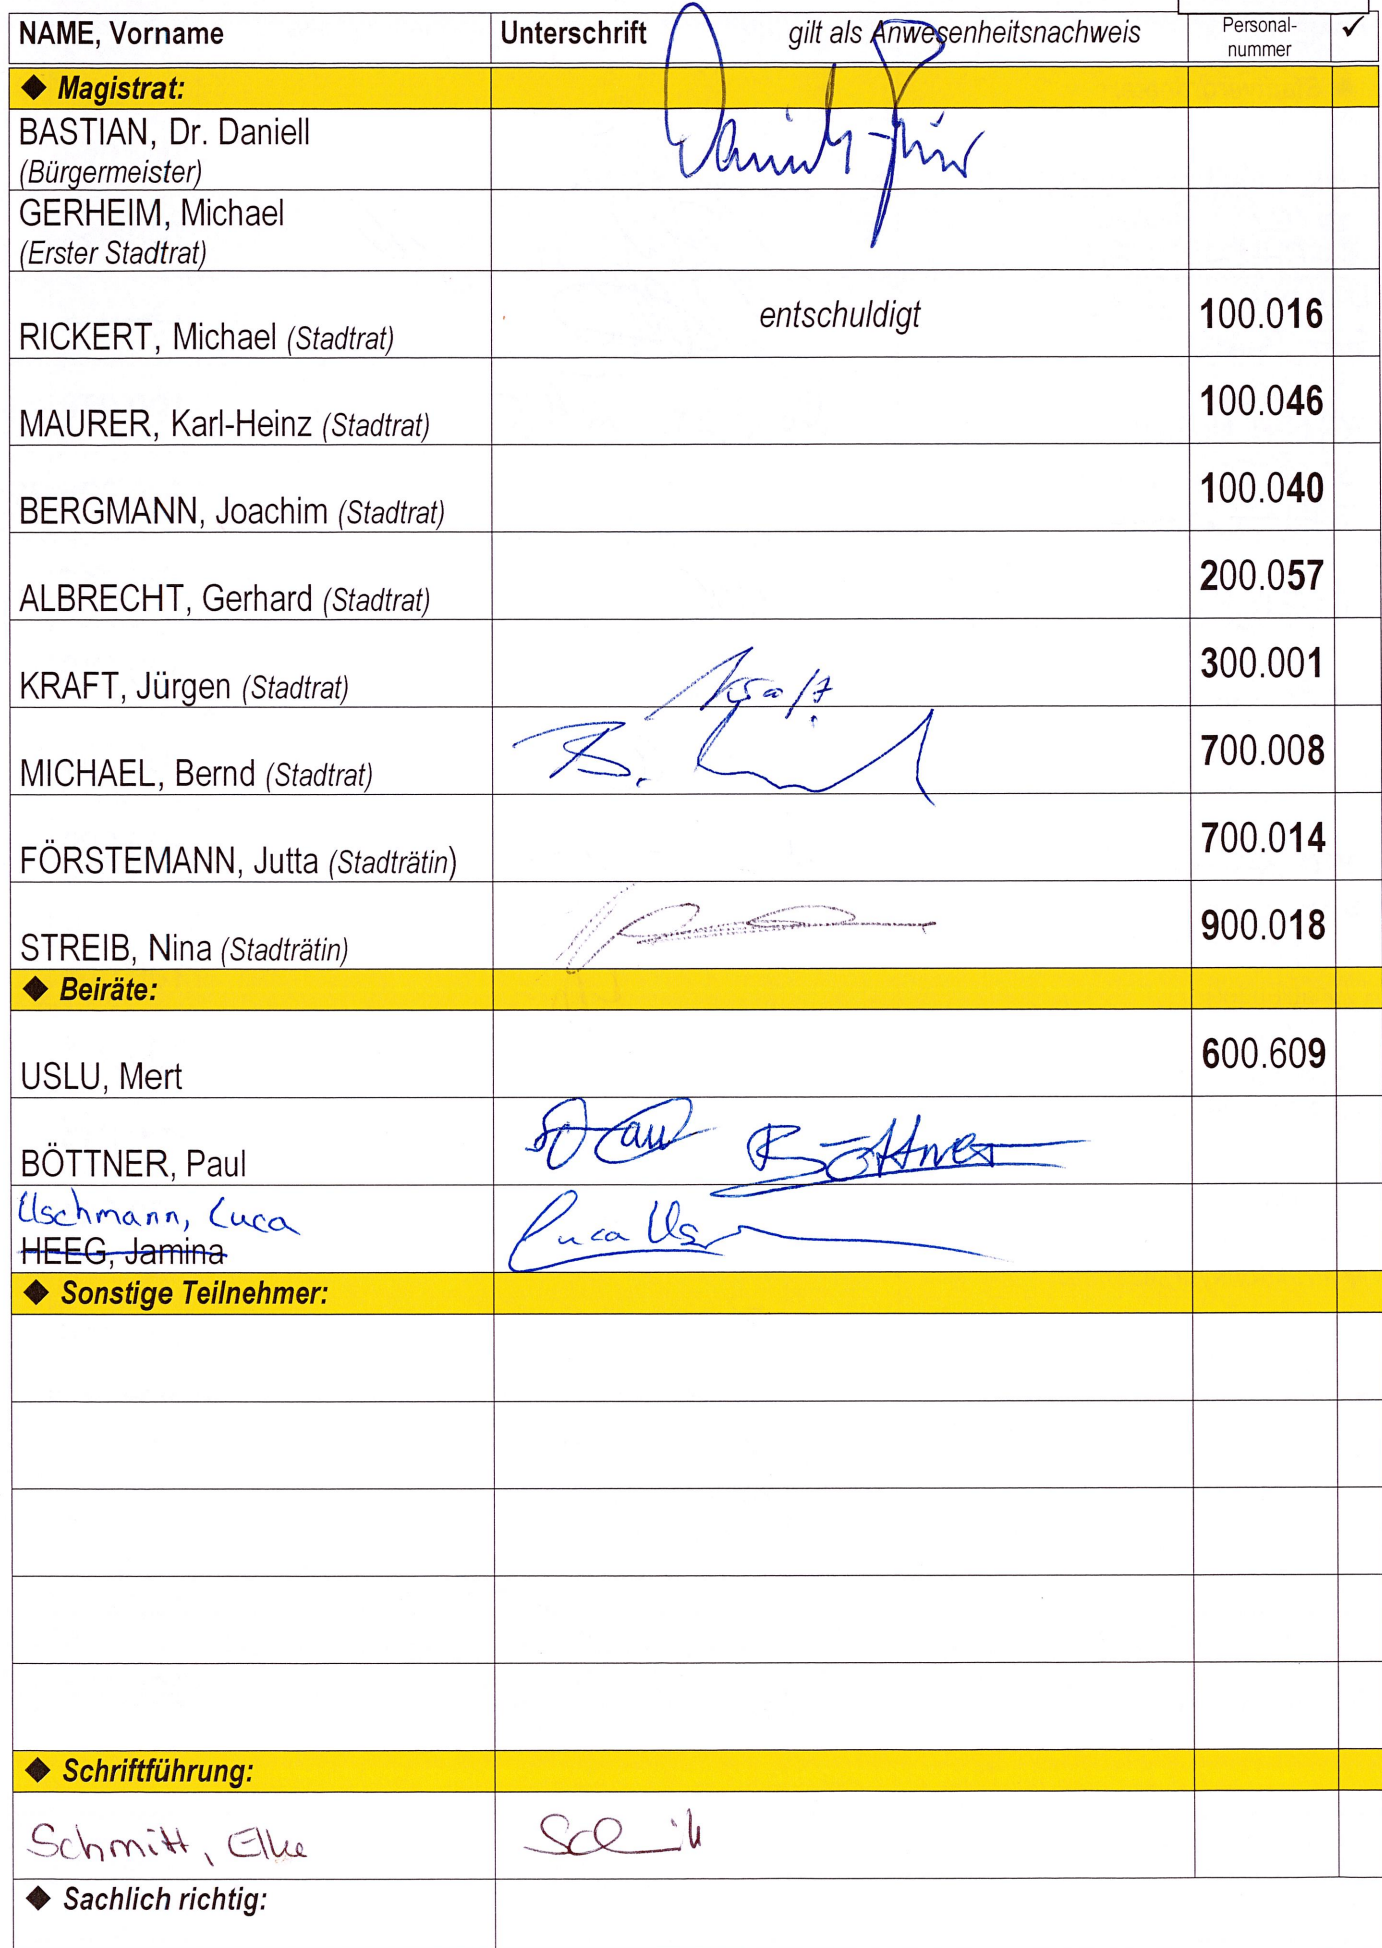 NAME, Vorname Unterschrift gilt als Anwesenheitsnachweis Personal-
nummer ✓
◆ Magistrat:
BASTIAN, Dr. Daniell
(Bürgermeister)
GERHEIM, Michael
(Erster Stadtrat)
RICKERT, Michael (Stadtrat) entschuldigt 100.016
MAURER, Karl-Heinz (Stadtrat) 100.046
BERGMANN, Joachim (Stadtrat) 100.040
ALBRECHT, Gerhard (Stadtrat) 200.057
KRAFT, Jürgen (Stadtrat) Kraft 300.001
MICHAEL, Bernd (Stadtrat) B. 700.008
FÖRSTEMANN, Jutta (Stadträtin) 700.014
STREIB, Nina (Stadträtin) 900.018
◆ Beiräte:
USLU, Mert 600.609
BÖTTNER, Paul Böttner
Uschmann, Luca Luca
HEEG, Jamina
◆ Sonstige Teilnehmer:
◆ Schriftführung:
Schmitt, Elke
◆ Sachlich richtig: